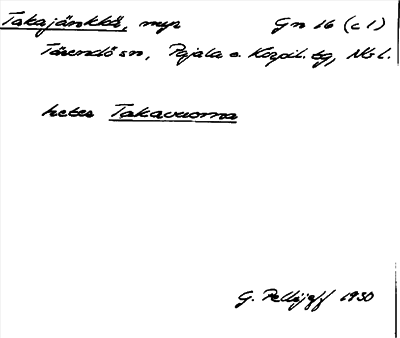 Takajänkkä, myr Gn 16 (c 1)
Tärendö sn, Pajala o. Korpil. tg, Nb l.
heter Takavuoma
G. Pellijeff 1930